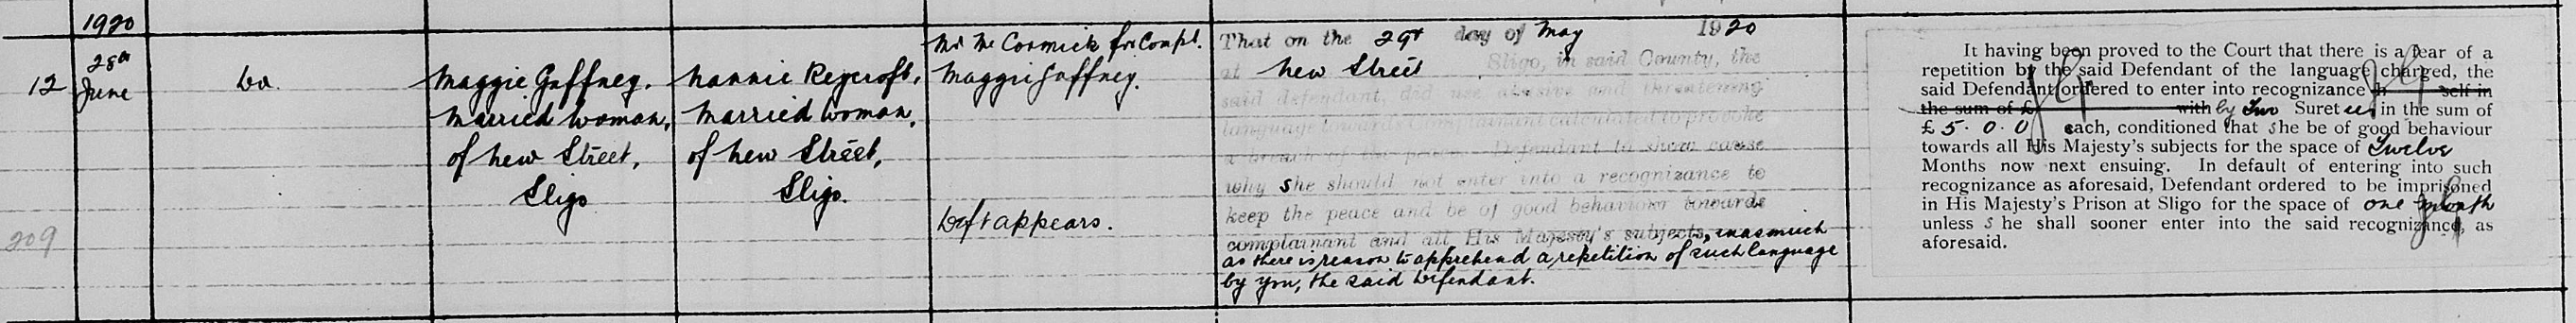 1920
12
28th
June
Do.
209
Maggie Gaffney,
Married Woman,
of New Street,
Sligo
Nannie Reycroft,
Married Woman,
of New Street,
Sligo.
Mr McCormick for Compt.
Maggie Gaffney.
Deft appears.
That on the 29th day of May 1920
at New Street Sligo, in said County, the
said defendant, did use abusive and threatening
language towards Complainant calculated to provoke
a breach of the peace. Defendant to show cause
why she should not enter into a recognizance to
keep the peace and be of good behaviour towards
complainant and all His Majesty's subjects, inasmuch
as there is reason to apprehend a repetition of such language
by you, the said Defendant.
It having been proved to the Court that there is a fear of a
repetition by the said Defendant of the language charged, the
said Defendant ordered to enter into recognizance h self in
the sum of £ with by Two Sureties in the sum of
£5. 0. 0 each, conditioned that she be of good behaviour
towards all His Majesty's subjects for the space of Twelve
Months now next ensuing. In default of entering into such
recognizance as aforesaid, Defendant ordered to be imprisoned
in His Majesty's Prison at Sligo for the space of one month
unless she shall sooner enter into the said recognizance, as
aforesaid.